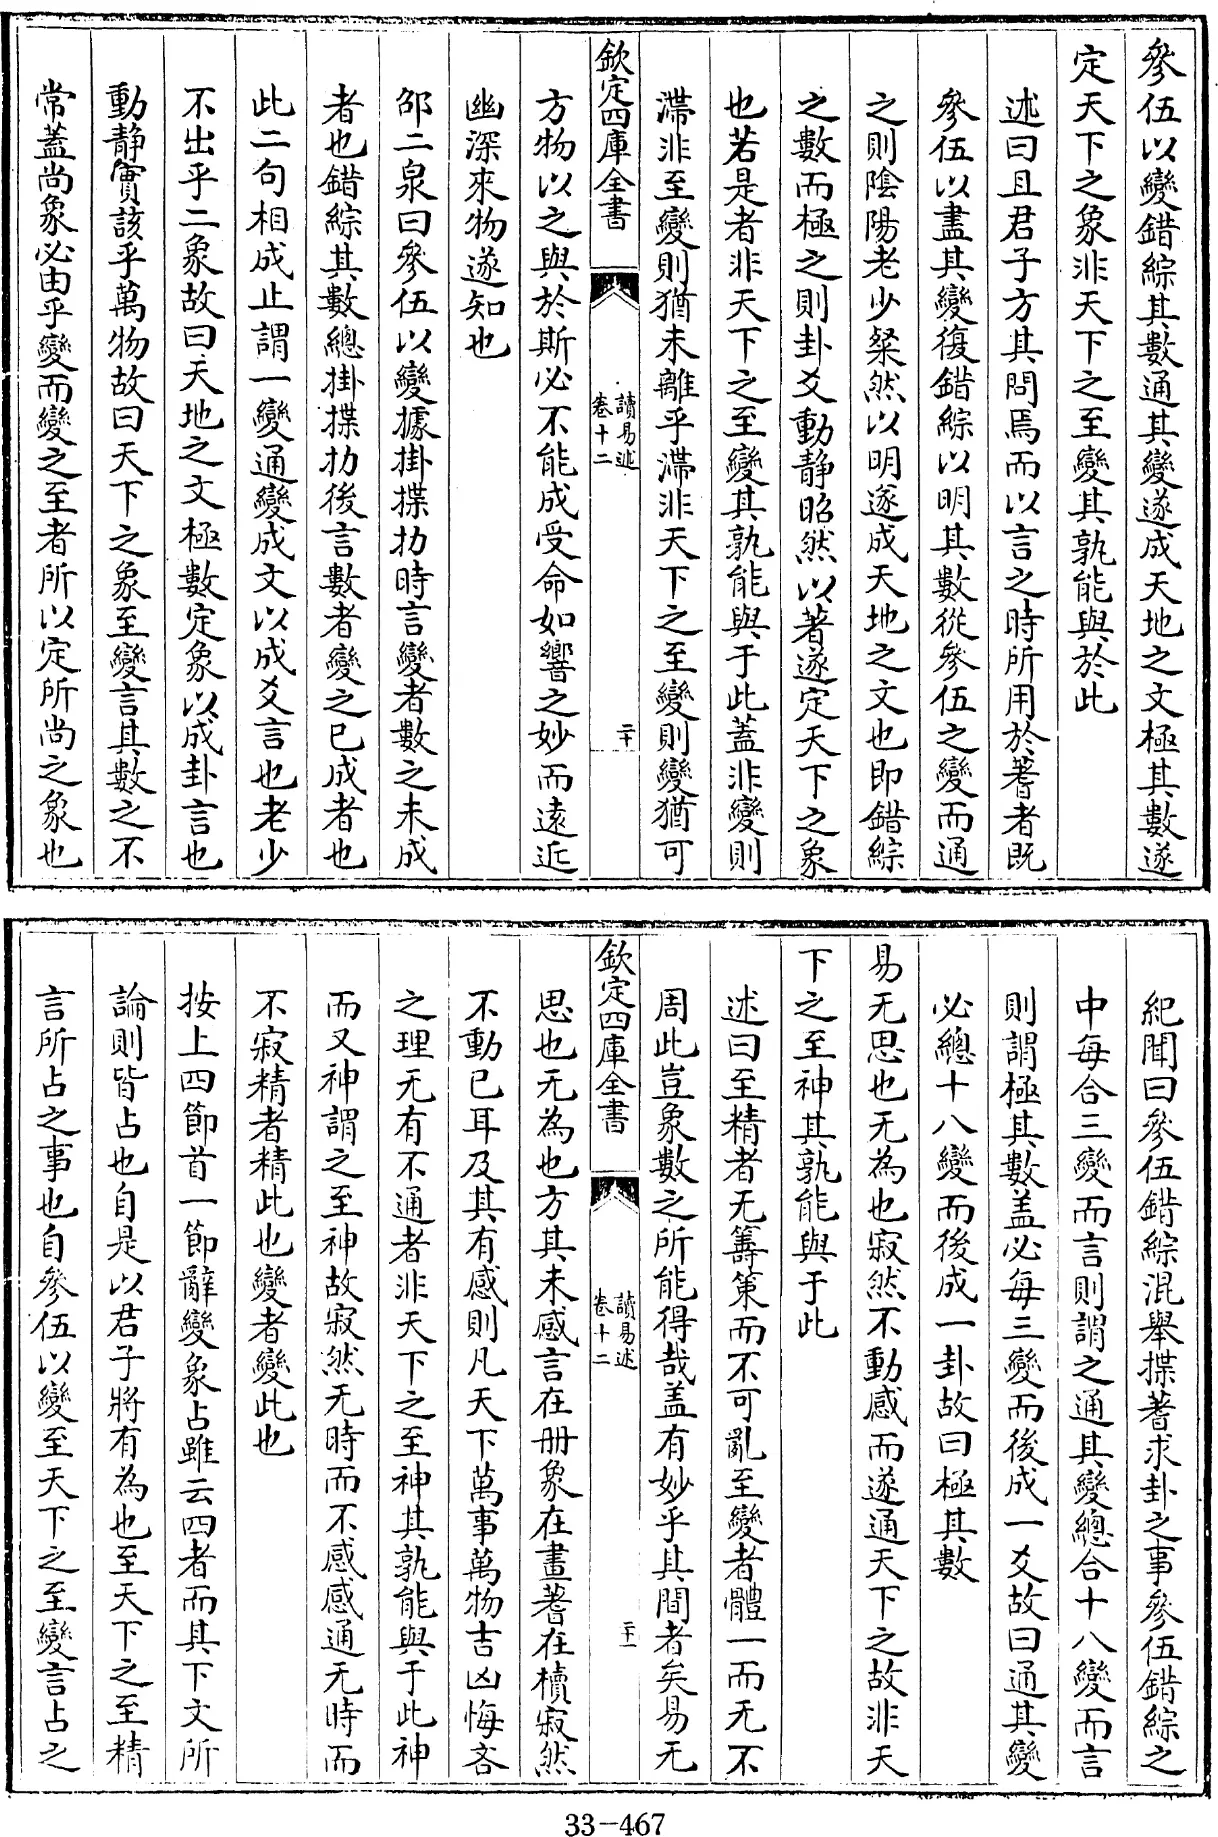 參伍以變錯綜其數通其變遂成天地之文極其數遂
定天下之象非天下之至變其孰能與於此
述曰且君子方其問焉而以言之時所用於蓍者既
參伍以盡其變復錯綜以明其數從參伍之變而通
之則陰陽老少粲然以明遂成天地之文也即錯綜
之數而極之則卦爻動靜昭然以著遂定天下之象
也若是者非天下之至變其孰能與于此蓋非變則
滯非至變則猶未離乎滯非天下之至變則變猶可
欽定四庫全書
讀易述
卷十二
二十
方物以之與於斯必不能成受命如響之妙而遠近
幽深來物遂知也
邵二泉曰參伍以變據掛揲扐時言變者數之未成
者也錯綜其數總掛揲扐後言數者變之已成者也
此二句相成止謂一變通變成文以成爻言也老少
不出乎二象故曰天地之文極數定象以成卦言也
動靜實該乎萬物故曰天下之象至變言其數之不
常蓋尚象必由乎變而變之至者所以定所尚之象也
紀聞曰參伍錯綜混舉揲蓍求卦之事參伍錯綜之
中每合三變而言則謂之通其變總合十八變而言
則謂極其數盖必每三變而後成一爻故曰通其變
必總十八變而後成一卦故曰極其數
易无思也无為也寂然不動感而遂通天下之故非天
下之至神其孰能與于此
述曰至精者无籌策而不可亂至變者體一而无不
周此豈象數之所能得哉盖有妙乎其間者矣易无
欽定四庫全書
讀易述
卷十二
二十一
思也无為也方其未感言在冊象在畫蓍在櫝寂然
不動已耳及其有感則凡天下萬事萬物吉凶悔吝
之理无有不通者非天下之至神其孰能與于此神
而又神謂之至神故寂然无時而不感感通无時而
不寂精者精此也變者變此也
按上四節首一節辭變象占雖云四者而其下文所
論則皆占也自是以君子將有為也至天下之至精
言所占之事也自參伍以變至天下之至變言占之
33-467